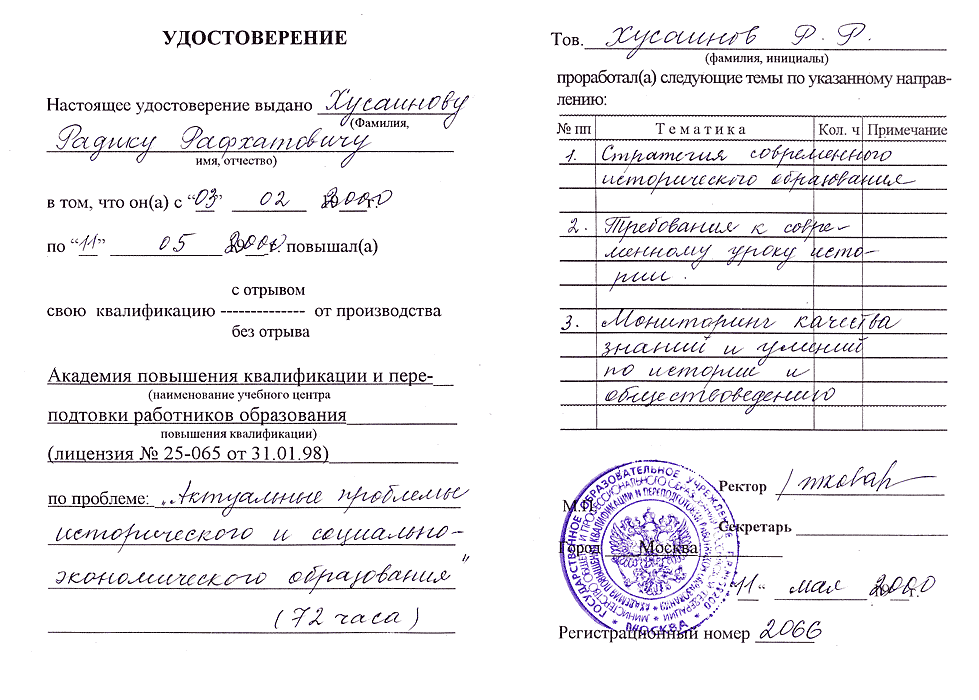 УДОСТОВЕРЕНИЕ
Настоящее удостоверение выдано Хусаинову
(Фамилия,
Радику Рафхатовичу
имя, отчество)
в том, что он(а) с “03” 02 2000 г.
по “11” 05 2000 г. повышал(а)
с отрывом
свою квалификацию -------------- от производства
без отрыва
Академия повышения квалификации и пере-
(наименование учебного центра
подтовки работников образования
повышения квалификации)
(лицензия № 25-065 от 31.01.98)
по проблеме: „Актуальные проблемы
исторического и социально-
экономического образования"
(72 часа)
Тов. Хусаинов Р. Р.
(фамилия, инициалы)
проработал(а) следующие темы по указанному направ-
лению:
№ пп Тематика Кол. ч Примечание
1. Стратегия современного
исторического образования
2. Требования к совре-
менному уроку исто-
рии.
3. Мониторинг качества
знаний и умений
по истории и
обществоведению
Ректор
М.П.
Секретарь
Город Москва
"11" мая 2000 г.
Регистрационный номер 2066
ГОСУДАРСТВЕННОЕ ОБРАЗОВАТЕЛЬНОЕ УЧРЕЖДЕНИЕ
МОСКВА